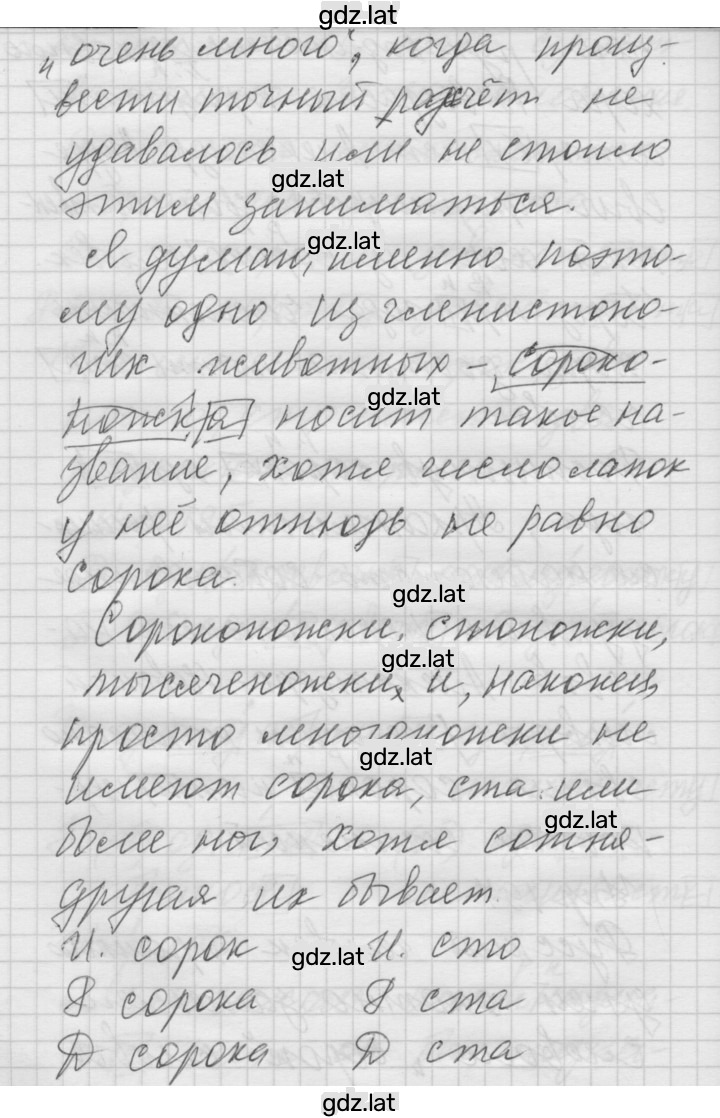 gdz.lat
„очень много", когда произ-
вести точный расчёт не
удавалось или не стоило
gdz.lat
этим заниматься.
gdz.lat
Я думаю, именно поэто-
му одно из членистоно-
гих животных – сороко-
gdz.lat
ножка носит такое на-
звание, хотя число лапок
у неё отнюдь не равно
сорока.
gdz.lat
Сороконожки, стоножки,
gdz.lat
тысяченожки и, наконец,
просто многоножки не
gdz.lat
имеют сорока, ста или
gdz.lat
более ног, хотя сотня-
другая их бывает.
И. сорок И. сто
gdz.lat
Р сорока Р ста
Д сорока Д ста
gdz.lat